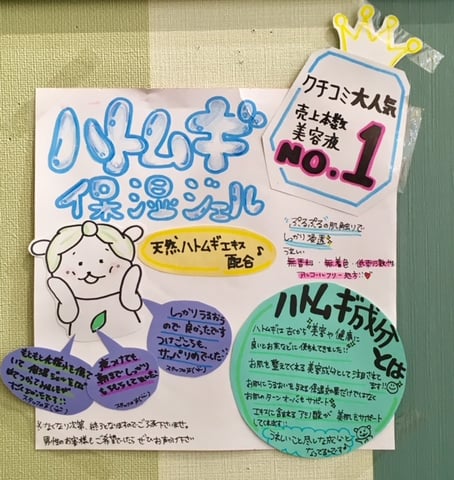 クチコミ大人気
売上本数
美容液
NO.1
ハトムギ
保湿ジェル
天然ハトムギエキス
配合♪
ぷるぷるの肌触りで
しっかり浸透
うれしい
無香料・無着色・低刺激性
アルコールフリー処方!!
しっかりうるおう
ので良かったです
つけごこちも、
サッパリめでした
スタッフ
夜つけても
朝までしっかり
スタッフ
もともと
スタッフ
ハトムギ成分
とは
ハトムギは古くから美容や健康に
良いとお茶などに使われてきました!!
お肌を整えてくれる美容成分として注目されて
ます!!
お肌にうるおいを与える保湿効果だけではなく
お肌のターンオーバーもサポート
エキスに含まれるアミノ酸が美肌をサポート
してくれます
うれしいこと尽くしな成分と
なってるんです♪
※なくなり次第、終了となりますのでご了承下さいませ。
男性のお客様もご希望でしたらぜひお声掛け下さい